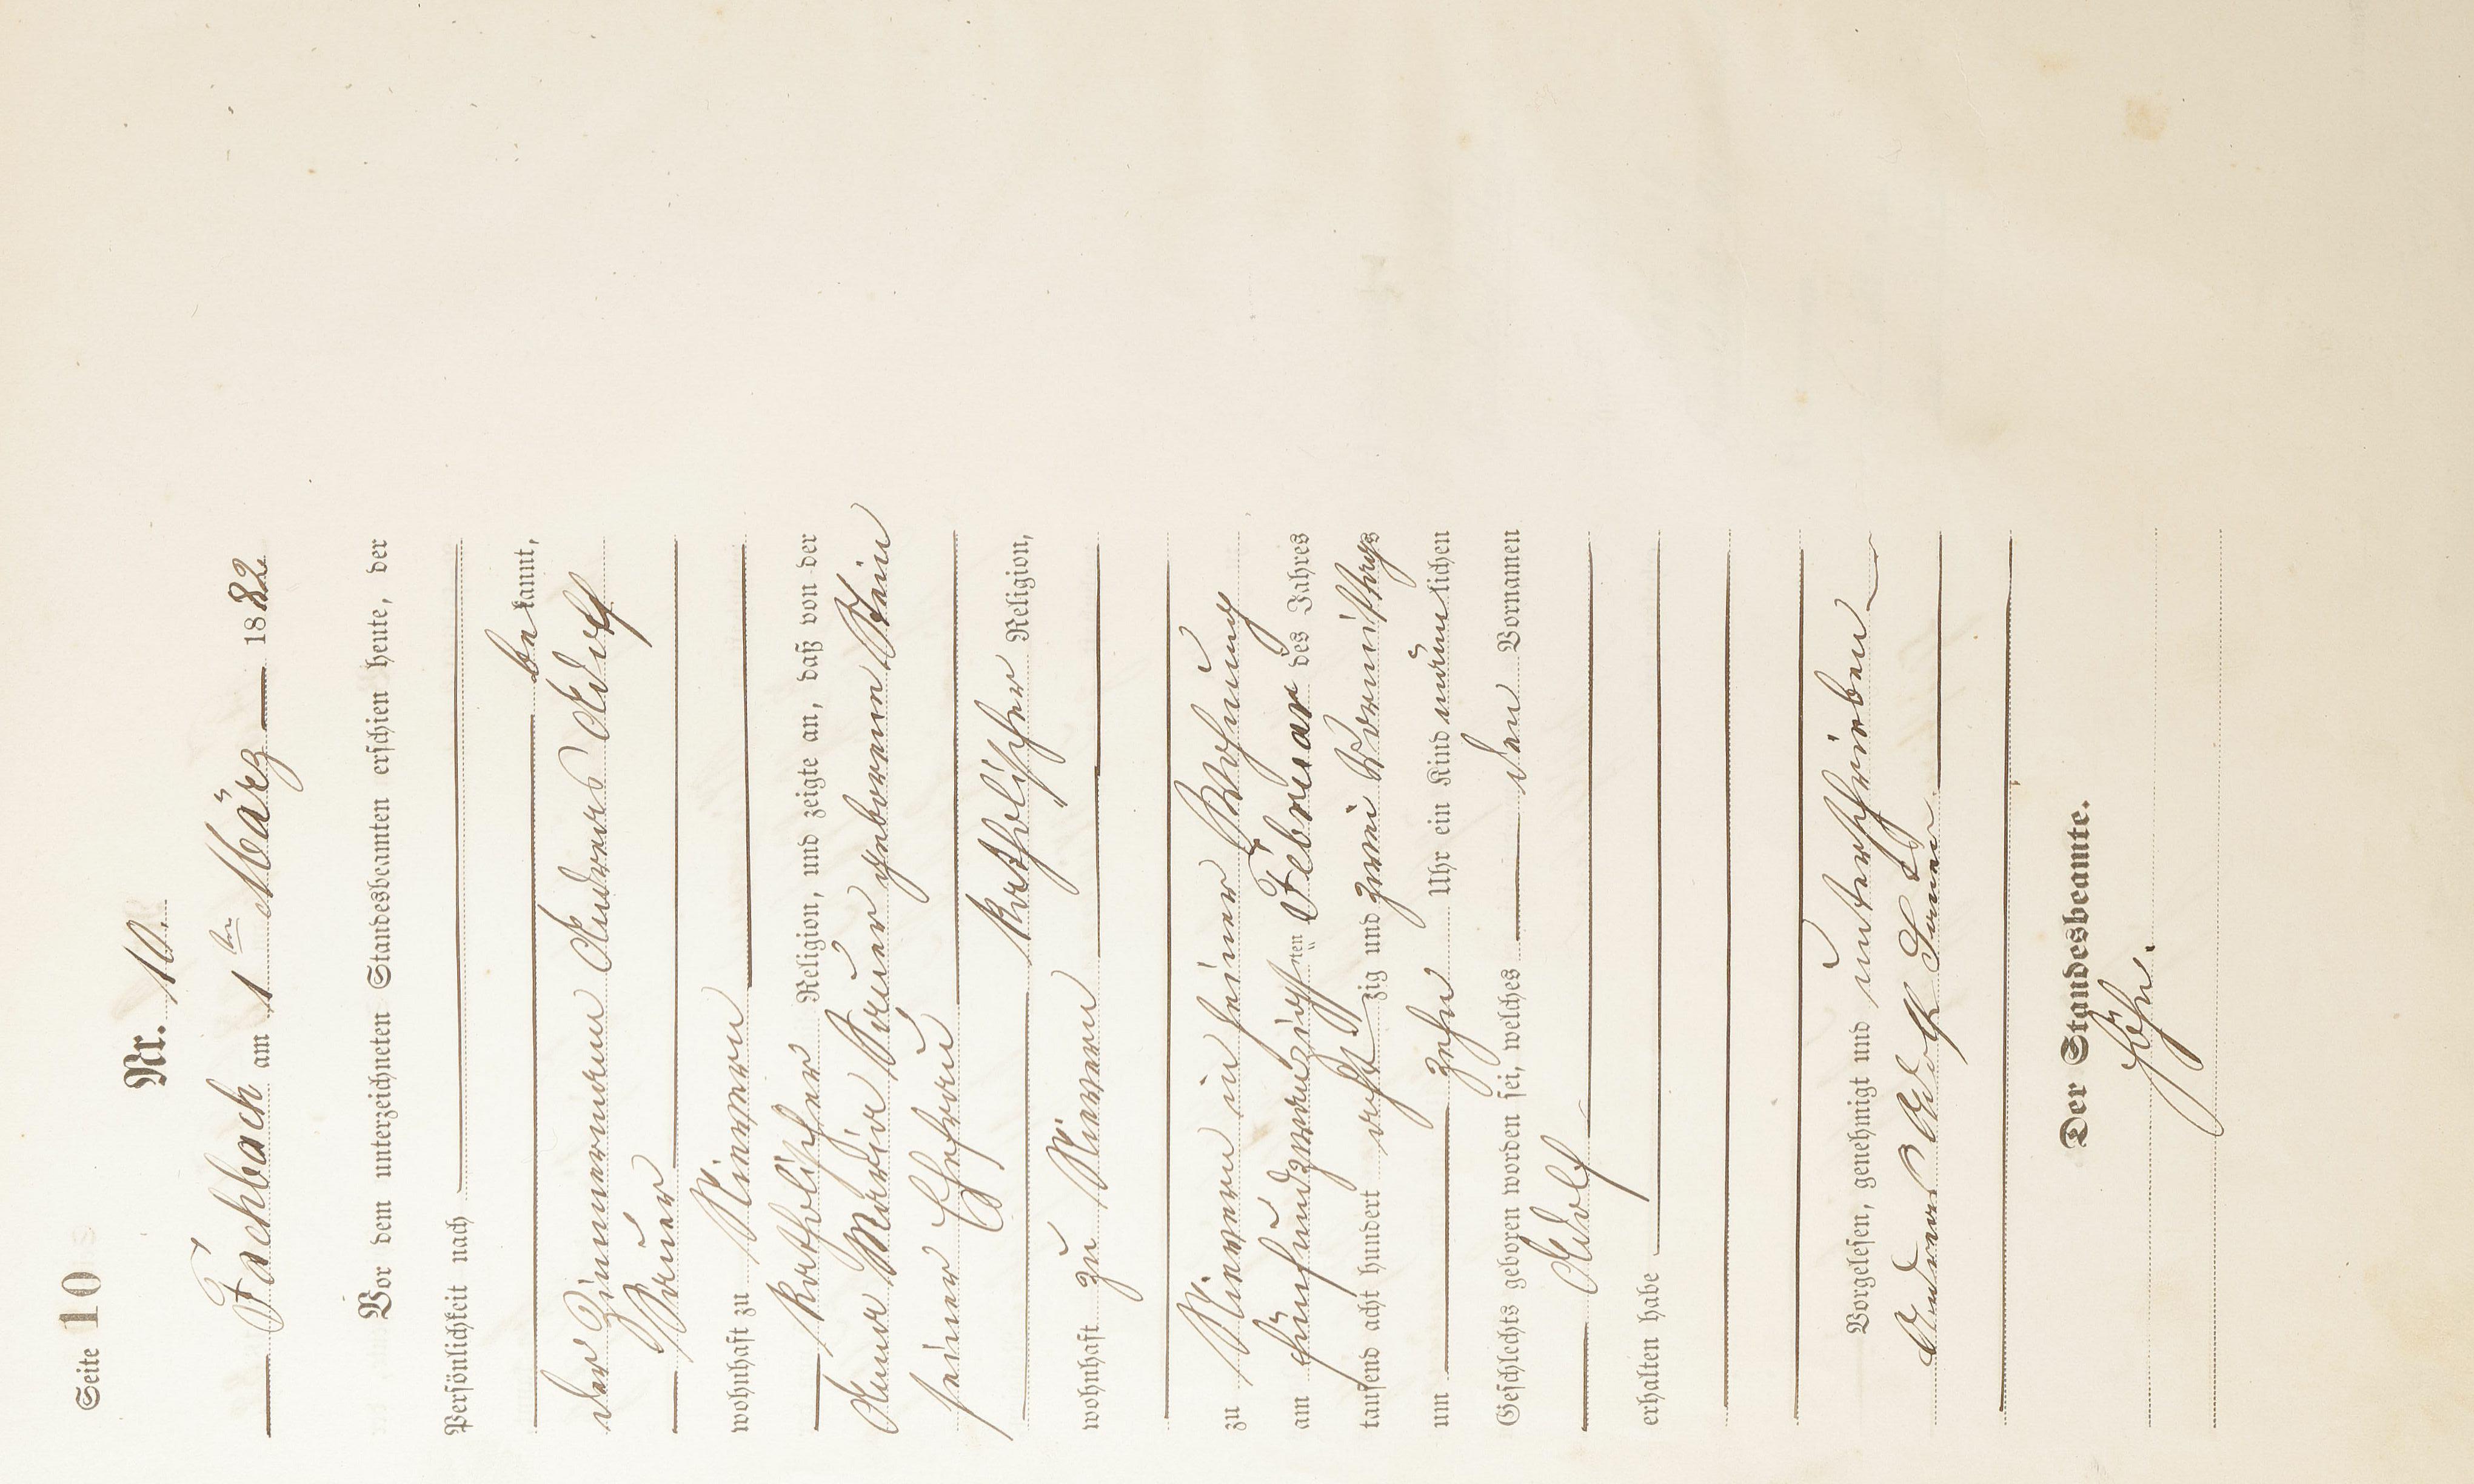 Seite 10
Nr. 10.
Fachbach am 1ten März 1882
Vor dem unterzeichneten Standesbeamten erschien heute, der
Persönlichkeit nach
bekannt,
der Zimmermann Andreas Adolf
Sauer
wohnhaft zu Nievern
katholischer Religion, und zeigte an, daß von der
Anna Maria Sauer geborenen Stein
seiner Ehefrau
katholischer Religion,
wohnhaft zu Nievern
zu Nievern in seiner Wohnung
am fünfundzwanzigsten Februar des Jahres
tausend acht hundert achtzig und zwei Vormittags
um zehn Uhr ein Kind männlichen
Geschlechts geboren worden sei, welches den Vornamen
Adolf
erhalten habe
Vorgelesen, genehmigt und unterschrieben
Andreas Adolf Sauer
Der Standesbeamte.
Höhn.